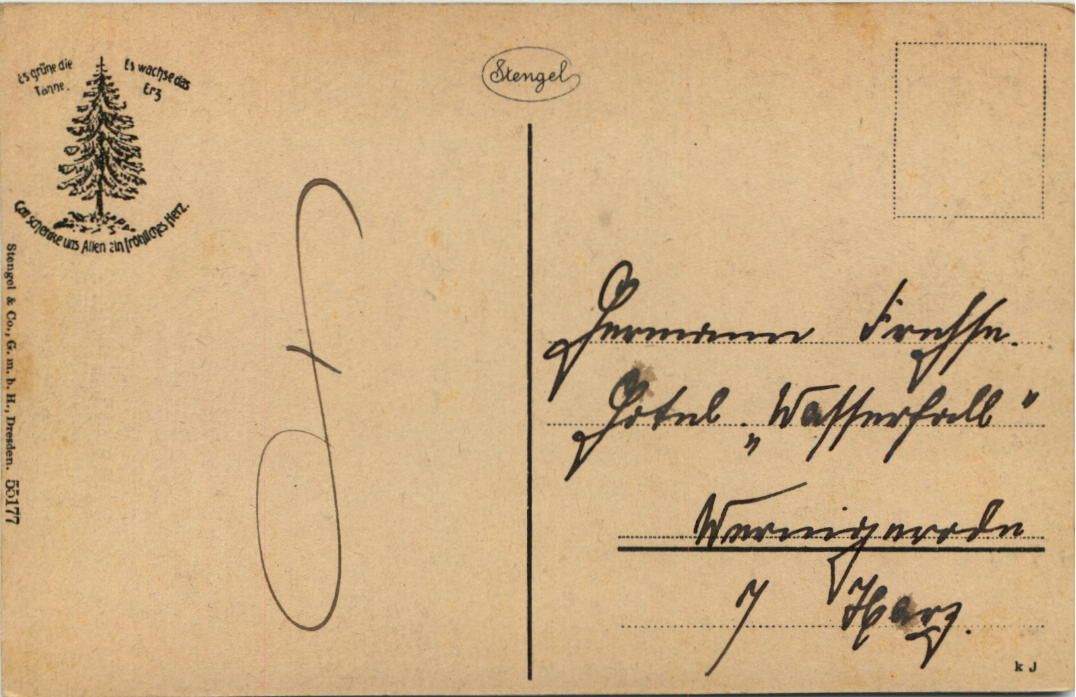 Es grüne die
Tanne.
Es wachse das
Erz
Gott schenke uns Allen ein fröhliches Herz.
Stengel & Co., G. m. b. H., Dresden. 55177
Stengel
Hermann Frehse.
Hotel „Wasserfall"
Wernigerode
/ Harz.
k J